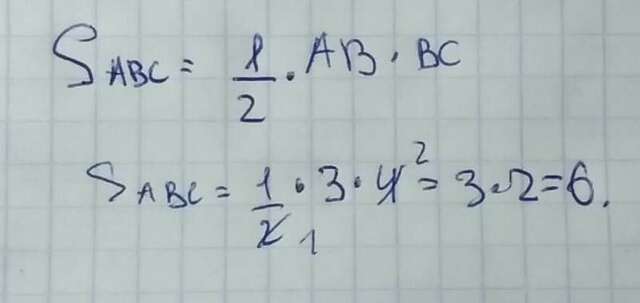 S_ABC = 1/2 · AB · BC
S_ABC = 1/2 1 · 3 · 4 2 = 3 · 2 = 6.